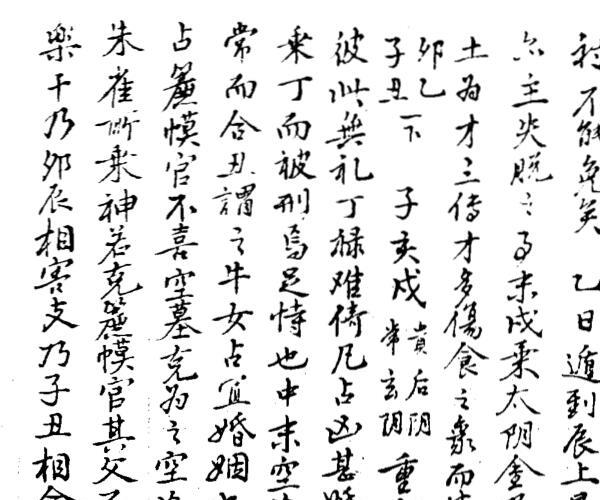 不能免矣 乙日遁到辰上
尔主失脱之子末戌乘太阴金
土为才三传才多傷食之象而
卯乙
子丑一下 子亥戌 貴后阴 常玄阴 重
彼此無礼丁禄难倚凡占凶甚
乘丁而被刑焉足恃也中末空
常而合丑謂之牛女占宜婚姻
占簾幙官不喜空墓克为之空
朱雀所乘神若克簾幙官其文
樂干乃卯辰相害支乃子丑相合